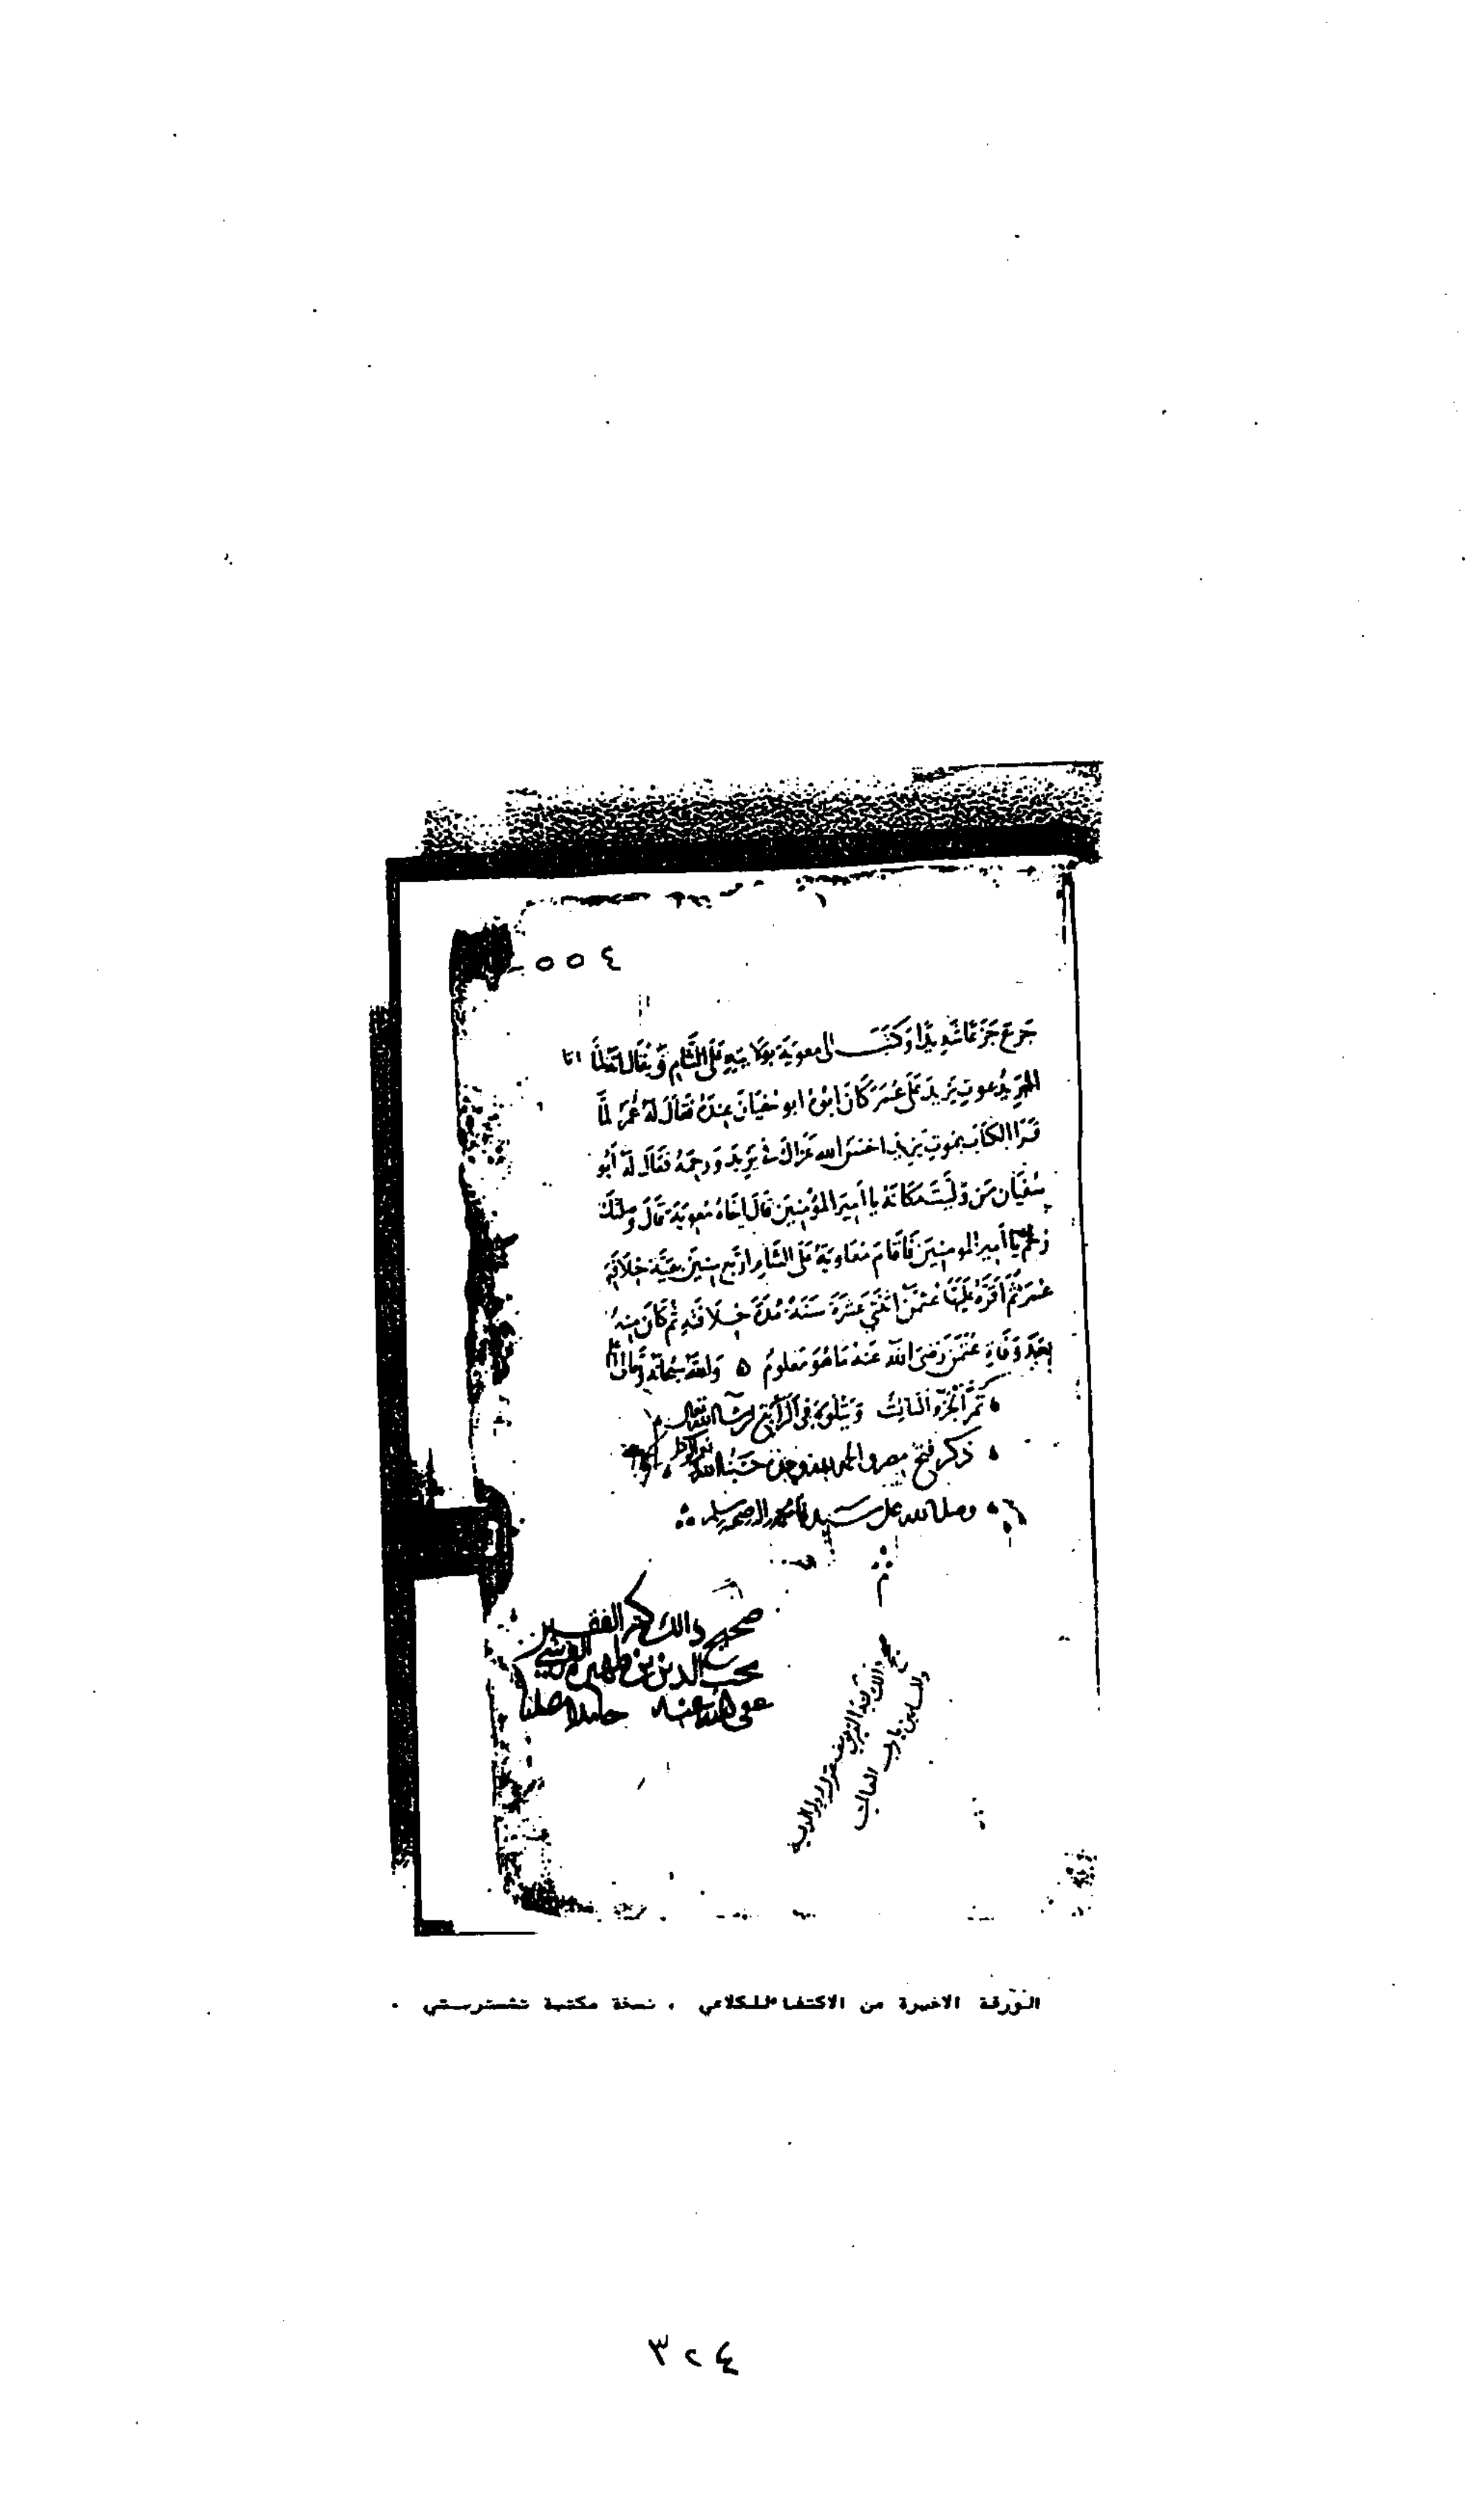 ٥٥٤
جزع جزعا شديدا وكتب الى معوية بولايته على الشام ويقال انه لما اتا
البريد بموت يزيد على عمر كان ابوه ابو سفيان عنده فقال له عمر لما
قرا الكتاب بموت يزيد احسن الله عزاك في يزيد ورحمه فقال له أبو
سفيان من وليت مكانه يا امير المؤمنين قال اخاه معوية قال وصلتك
رحم يا أمير المومنين فاقام معاوية على الشام اربع سنين بقية خلافة
عمر ثم اقره عليها عثمن اثنتي عشرة سنة مدة خلافته ثم كان منه
بعد وفاة عثمن رضى الله عنه ما هو معلوم ٥ والله سبحانه وتعالى
تم الجزو الثالث ويتلوه في الرابع ان شا الله تعالى
ذكر فتح مصر والحمد لله وحده حسبنا الله
وصلى الله على سيدنا محمد واله وصحبه وسلم
صحيح ذالك كتبه الفقير
محب الدين بن ظهير القرشي
عفى الله عنه حامدا مصليا
الورقة الاخيرة من الاكتفا للكلاعي ، نسخة مكتبة تشستربيتي .
٣٢٤